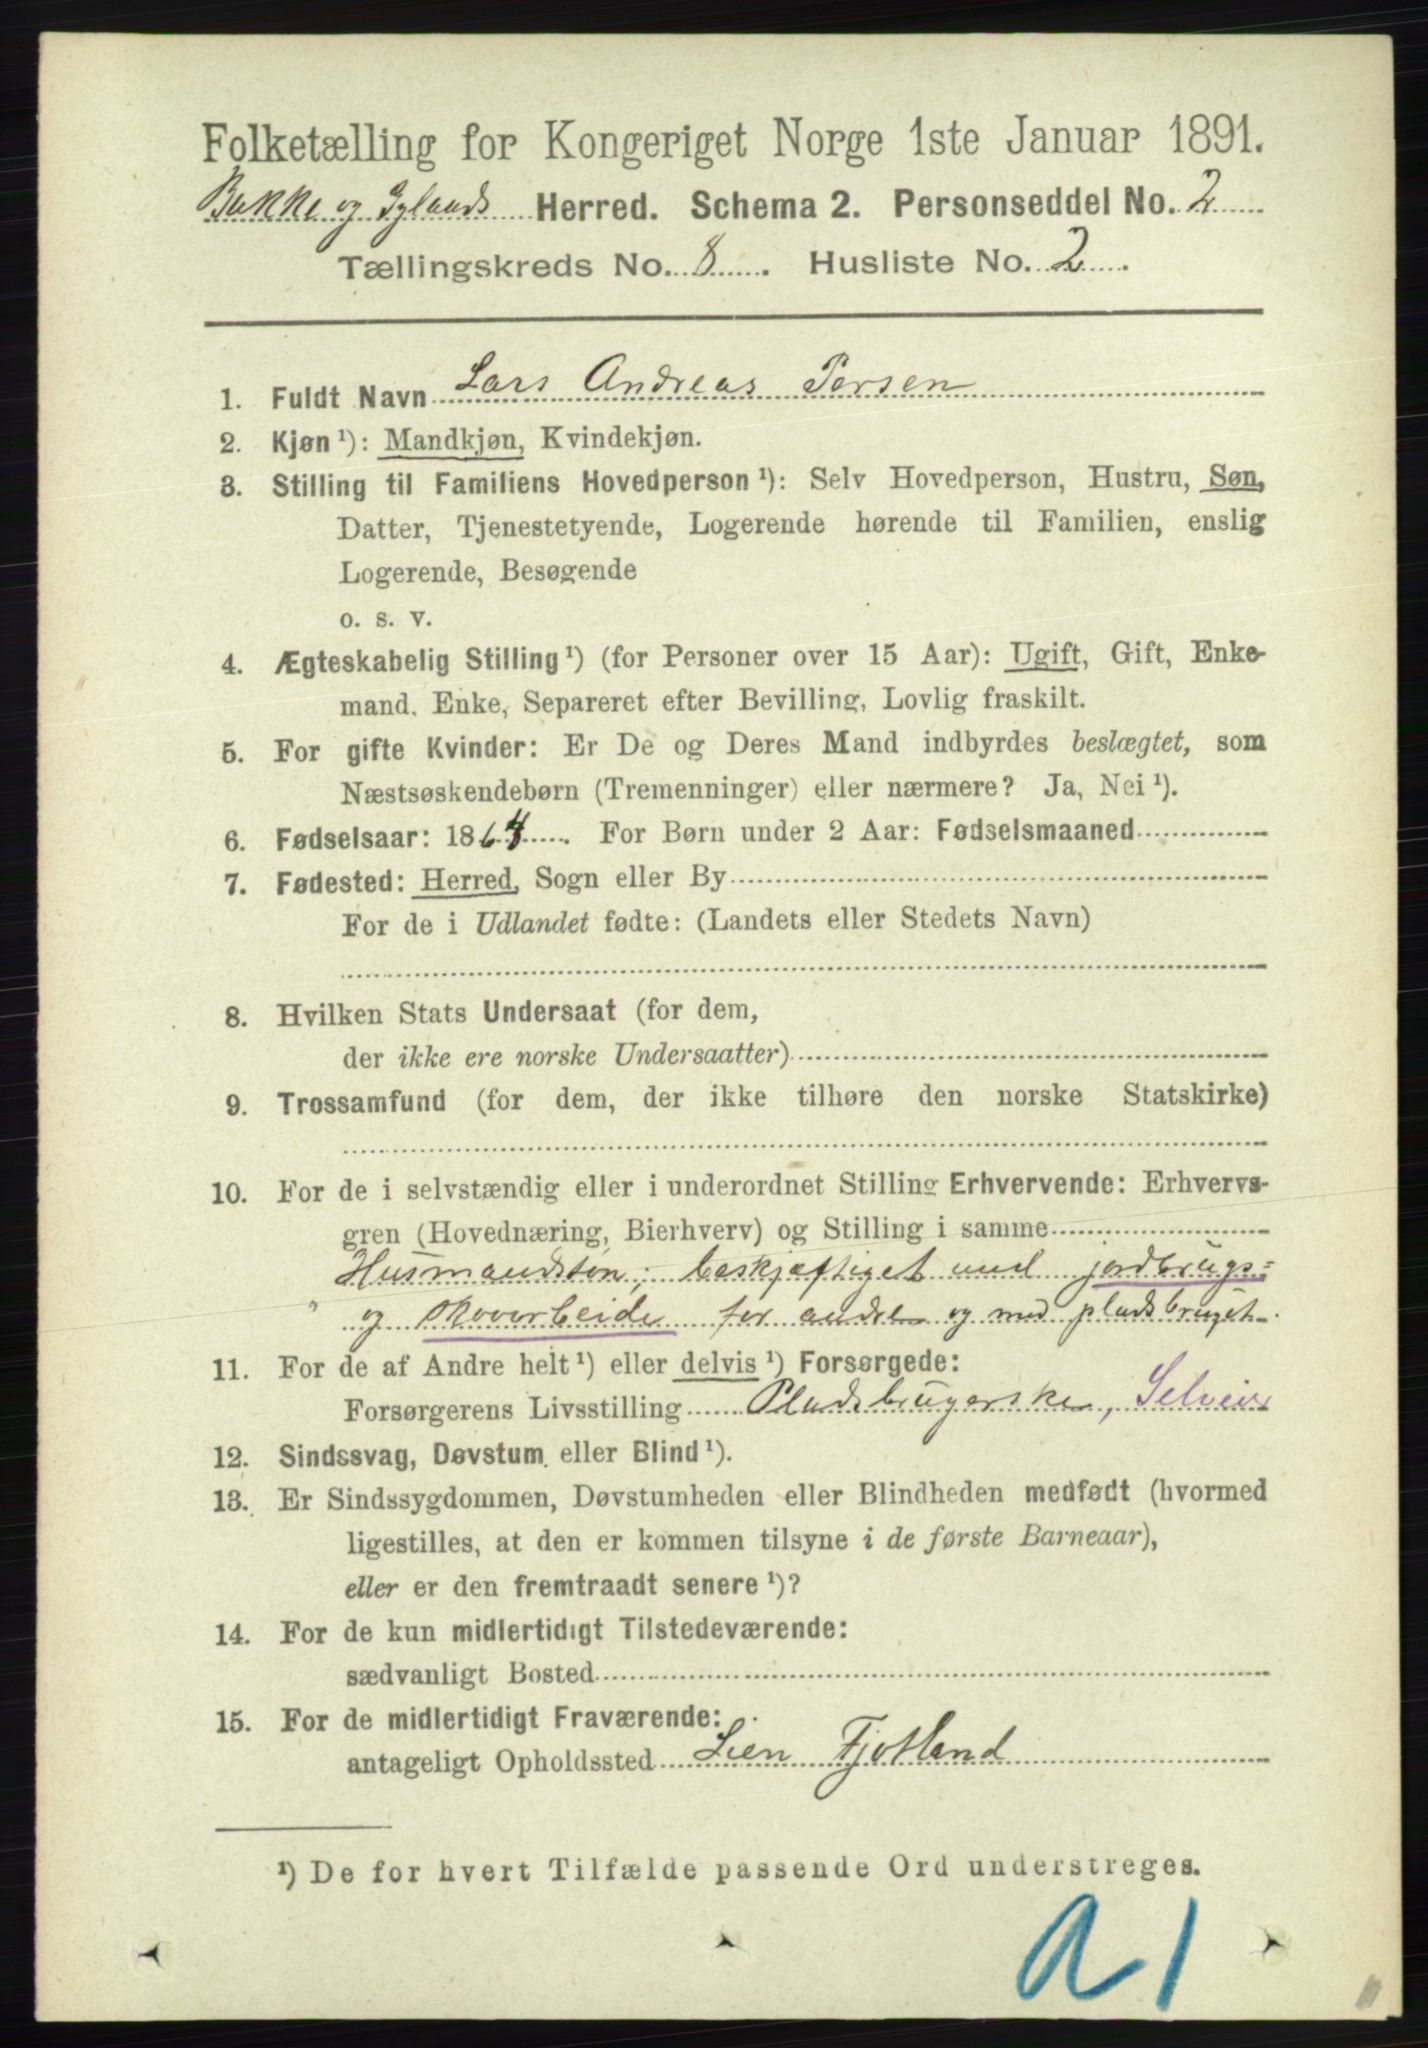 Folketælling for Kongeriget Norge 1ste Januar 1891.
Bakke og Gylands Herred. Schema 2. Personseddel No. 2
Tællingskreds No. 8. Husliste No. 2.
1. Fuldt Navn Lars Andreas Persen
2. Kjøn ¹): Mandkjøn, Kvindekjøn.
3. Stilling til Familiens Hovedperson ¹): Selv Hovedperson, Hustru, Søn,
Datter, Tjenestetyende, Logerende hørende til Familien, enslig
Logerende, Besøgende
o. s. v.
4. Ægteskabelig Stilling ¹) (for Personer over 15 Aar): Ugift, Gift, Enke-
mand, Enke, Separeret efter Bevilling, Lovlig fraskilt.
5. For gifte Kvinder: Er De og Deres Mand indbyrdes beslægtet, som
Næstsøskendebørn (Tremenninger) eller nærmere? Ja, Nei ¹).
6. Fødselsaar: 1864. For Børn under 2 Aar: Fødselsmaaned
7. Fødested: Herred, Sogn eller By
For de i Udlandet fødte: (Landets eller Stedets Navn)
8. Hvilken Stats Undersaat (for dem,
der ikke ere norske Undersaatter)
9. Trossamfund (for dem, der ikke tilhøre den norske Statskirke)
10. For de i selvstændig eller i underordnet Stilling Erhvervende: Erhvervs-
gren (Hovednæring, Bierhverv) og Stilling i samme
Husmandsøn; beskjæftiget med jordbrugs=
og skovarbeide for andre og med pladsbruget.
11. For de af Andre helt ¹) eller delvis ¹) Forsørgede:
Forsørgerens Livsstilling Pladsbrugerske, Selveier
12. Sindssvag, Døvstum eller Blind ¹).
13. Er Sindssygdommen, Døvstumheden eller Blindheden medfødt (hvormed
ligestilles, at den er kommen tilsyne i de første Barneaar),
eller er den fremtraadt senere ¹)?
14. For de kun midlertidigt Tilstedeværende:
sædvanligt Bosted
15. For de midlertidigt Fraværende:
antageligt Opholdssted Lien Fjotland
¹) De for hvert Tilfælde passende Ord understreges.
a 1